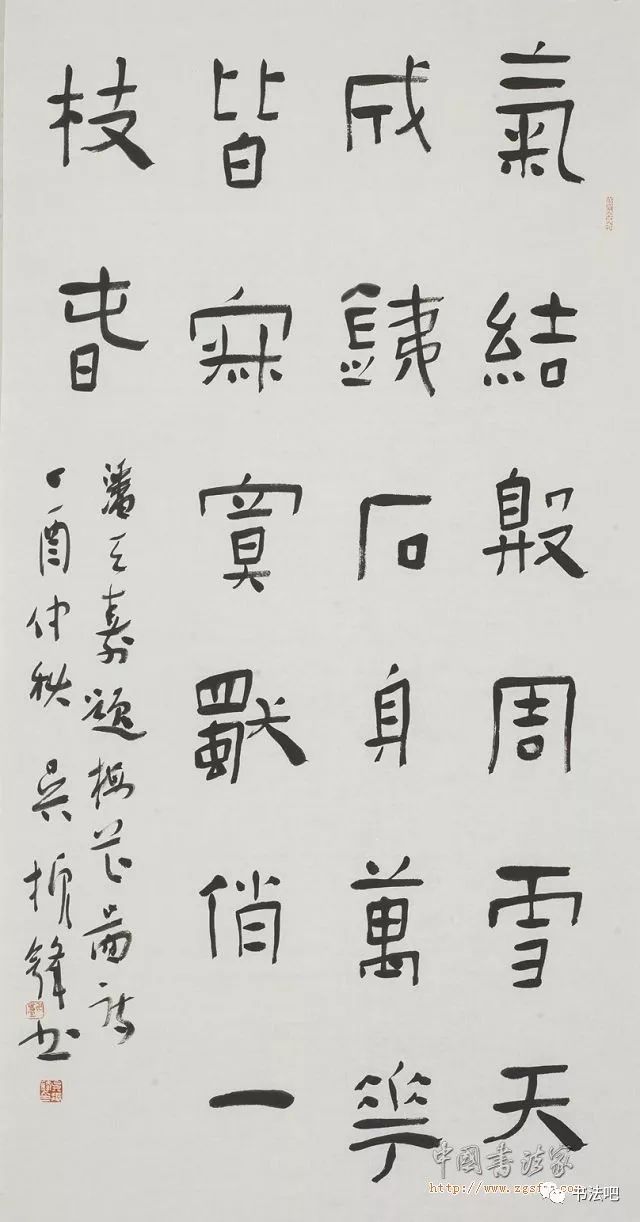 氣結殷周雪天
成鐵石身萬花
皆白寂寞獸俏一
枝春
潘天壽題梅花圖詩
丁酉仲秋吳振鋒書
中國書法家
http://www.zgsfj
书法吧